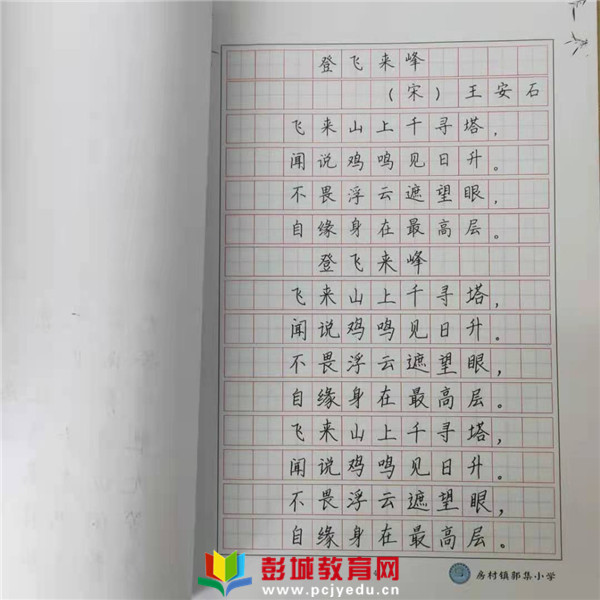 登飞来峰
(宋)王安石
飞来山上千寻塔,
闻说鸡鸣见日升。
不畏浮云遮望眼,
自缘身在最高层。
登飞来峰
飞来山上千寻塔,
闻说鸡鸣见日升。
不畏浮云遮望眼,
自缘身在最高层。
飞来山上千寻塔,
闻说鸡鸣见日升。
不畏浮云遮望眼,
自缘身在最高层。
房村镇郭集小学
彭城教育网
www.pcjyedu.cn